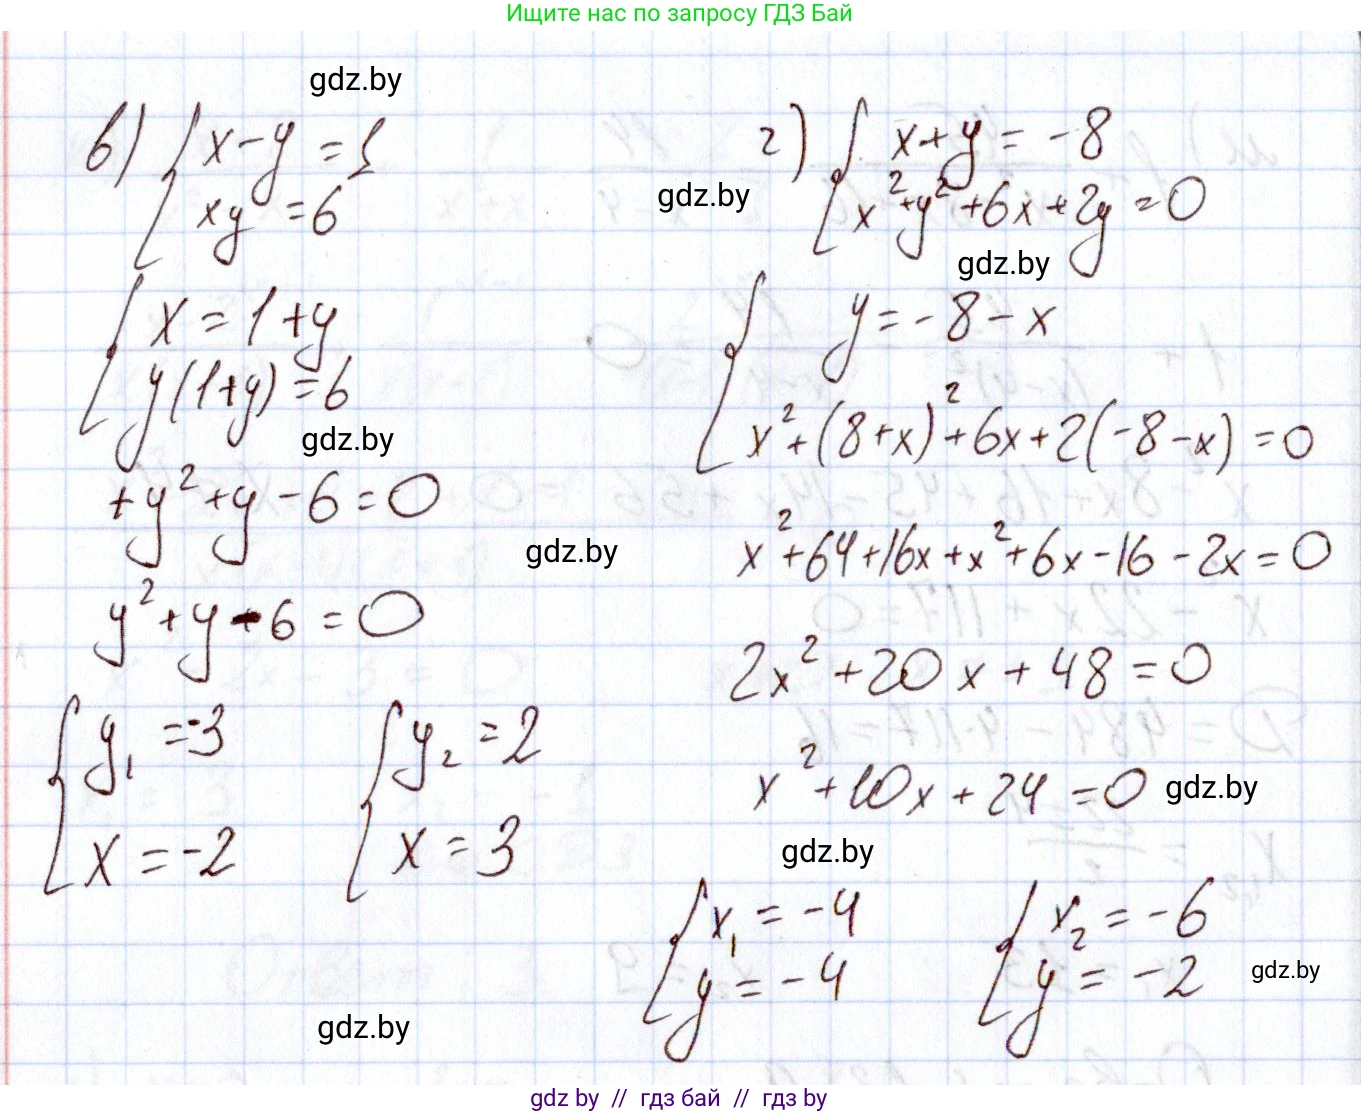 Ищите нас по запросу ГДЗ Бай
gdz.by
в) { x - y = 1
xy = 6
{ x = 1 + y
y(1+y) = 6
gdz.by
+y² + y - 6 = 0
y² + y - 6 = 0
{ y₁ = -3
x = -2
{ y₂ = 2
x = 3
gdz.by
г) { x + y = -8
gdz.by
x² + y² + 6x + 2y = 0
gdz.by
{ y = -8 - x
x² + (8+x)² + 6x + 2(-8-x) = 0
gdz.by
x² + 64 + 16x + x² + 6x - 16 - 2x = 0
2x² + 20x + 48 = 0
x² + 10x + 24 = 0
gdz.by
gdz.by
{ x₁ = -4
y = -4
{ x₂ = -6
y = -2
gdz.by
gdz by // гдз бай // гдз by